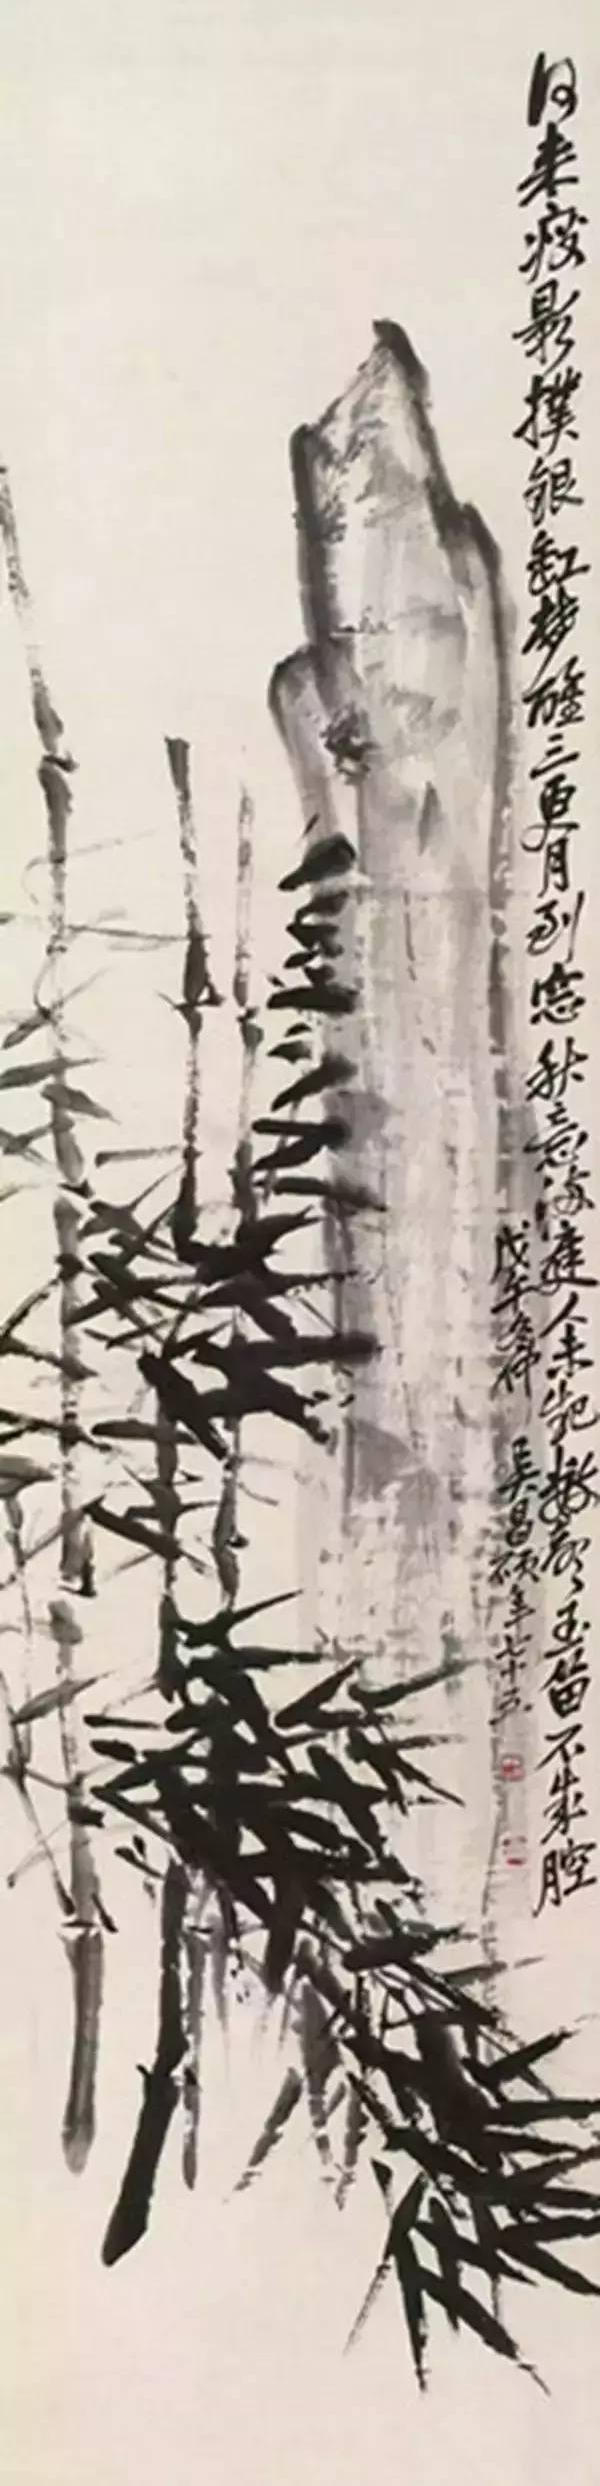 何来疫影撲銀缸梦醒三更月到窓秋意滿庭人未起數聲玉笛不成腔
戊午冬仲吳昌碩年七十五